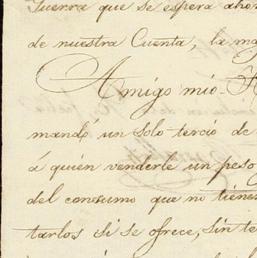 Guerra que se espera aho
de nuestra Cuenta, la ma
Amigo mio
mandó un solo tercio de
á quién venderle un peso
del consumo que no tiene
tarlos si se ofrece, sin te